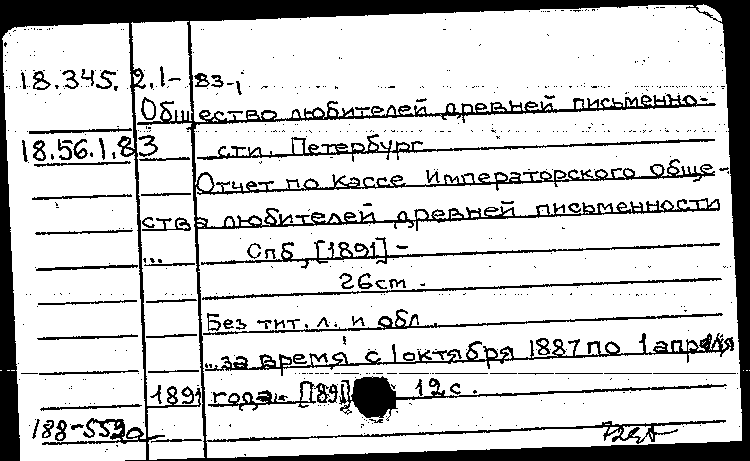 18.345. 2.1- 83-,
Общество любителей древней письменно-
18.56.1.83 сти. Петербург
Отчет по кассе Императорского обще-
ства любителей древней письменности
... Спб, [1891] -
26см.
Без тит. л. и обл.
...за время с 1 октября 1887 по 1 апреля
1891 года. [1891] 12с.